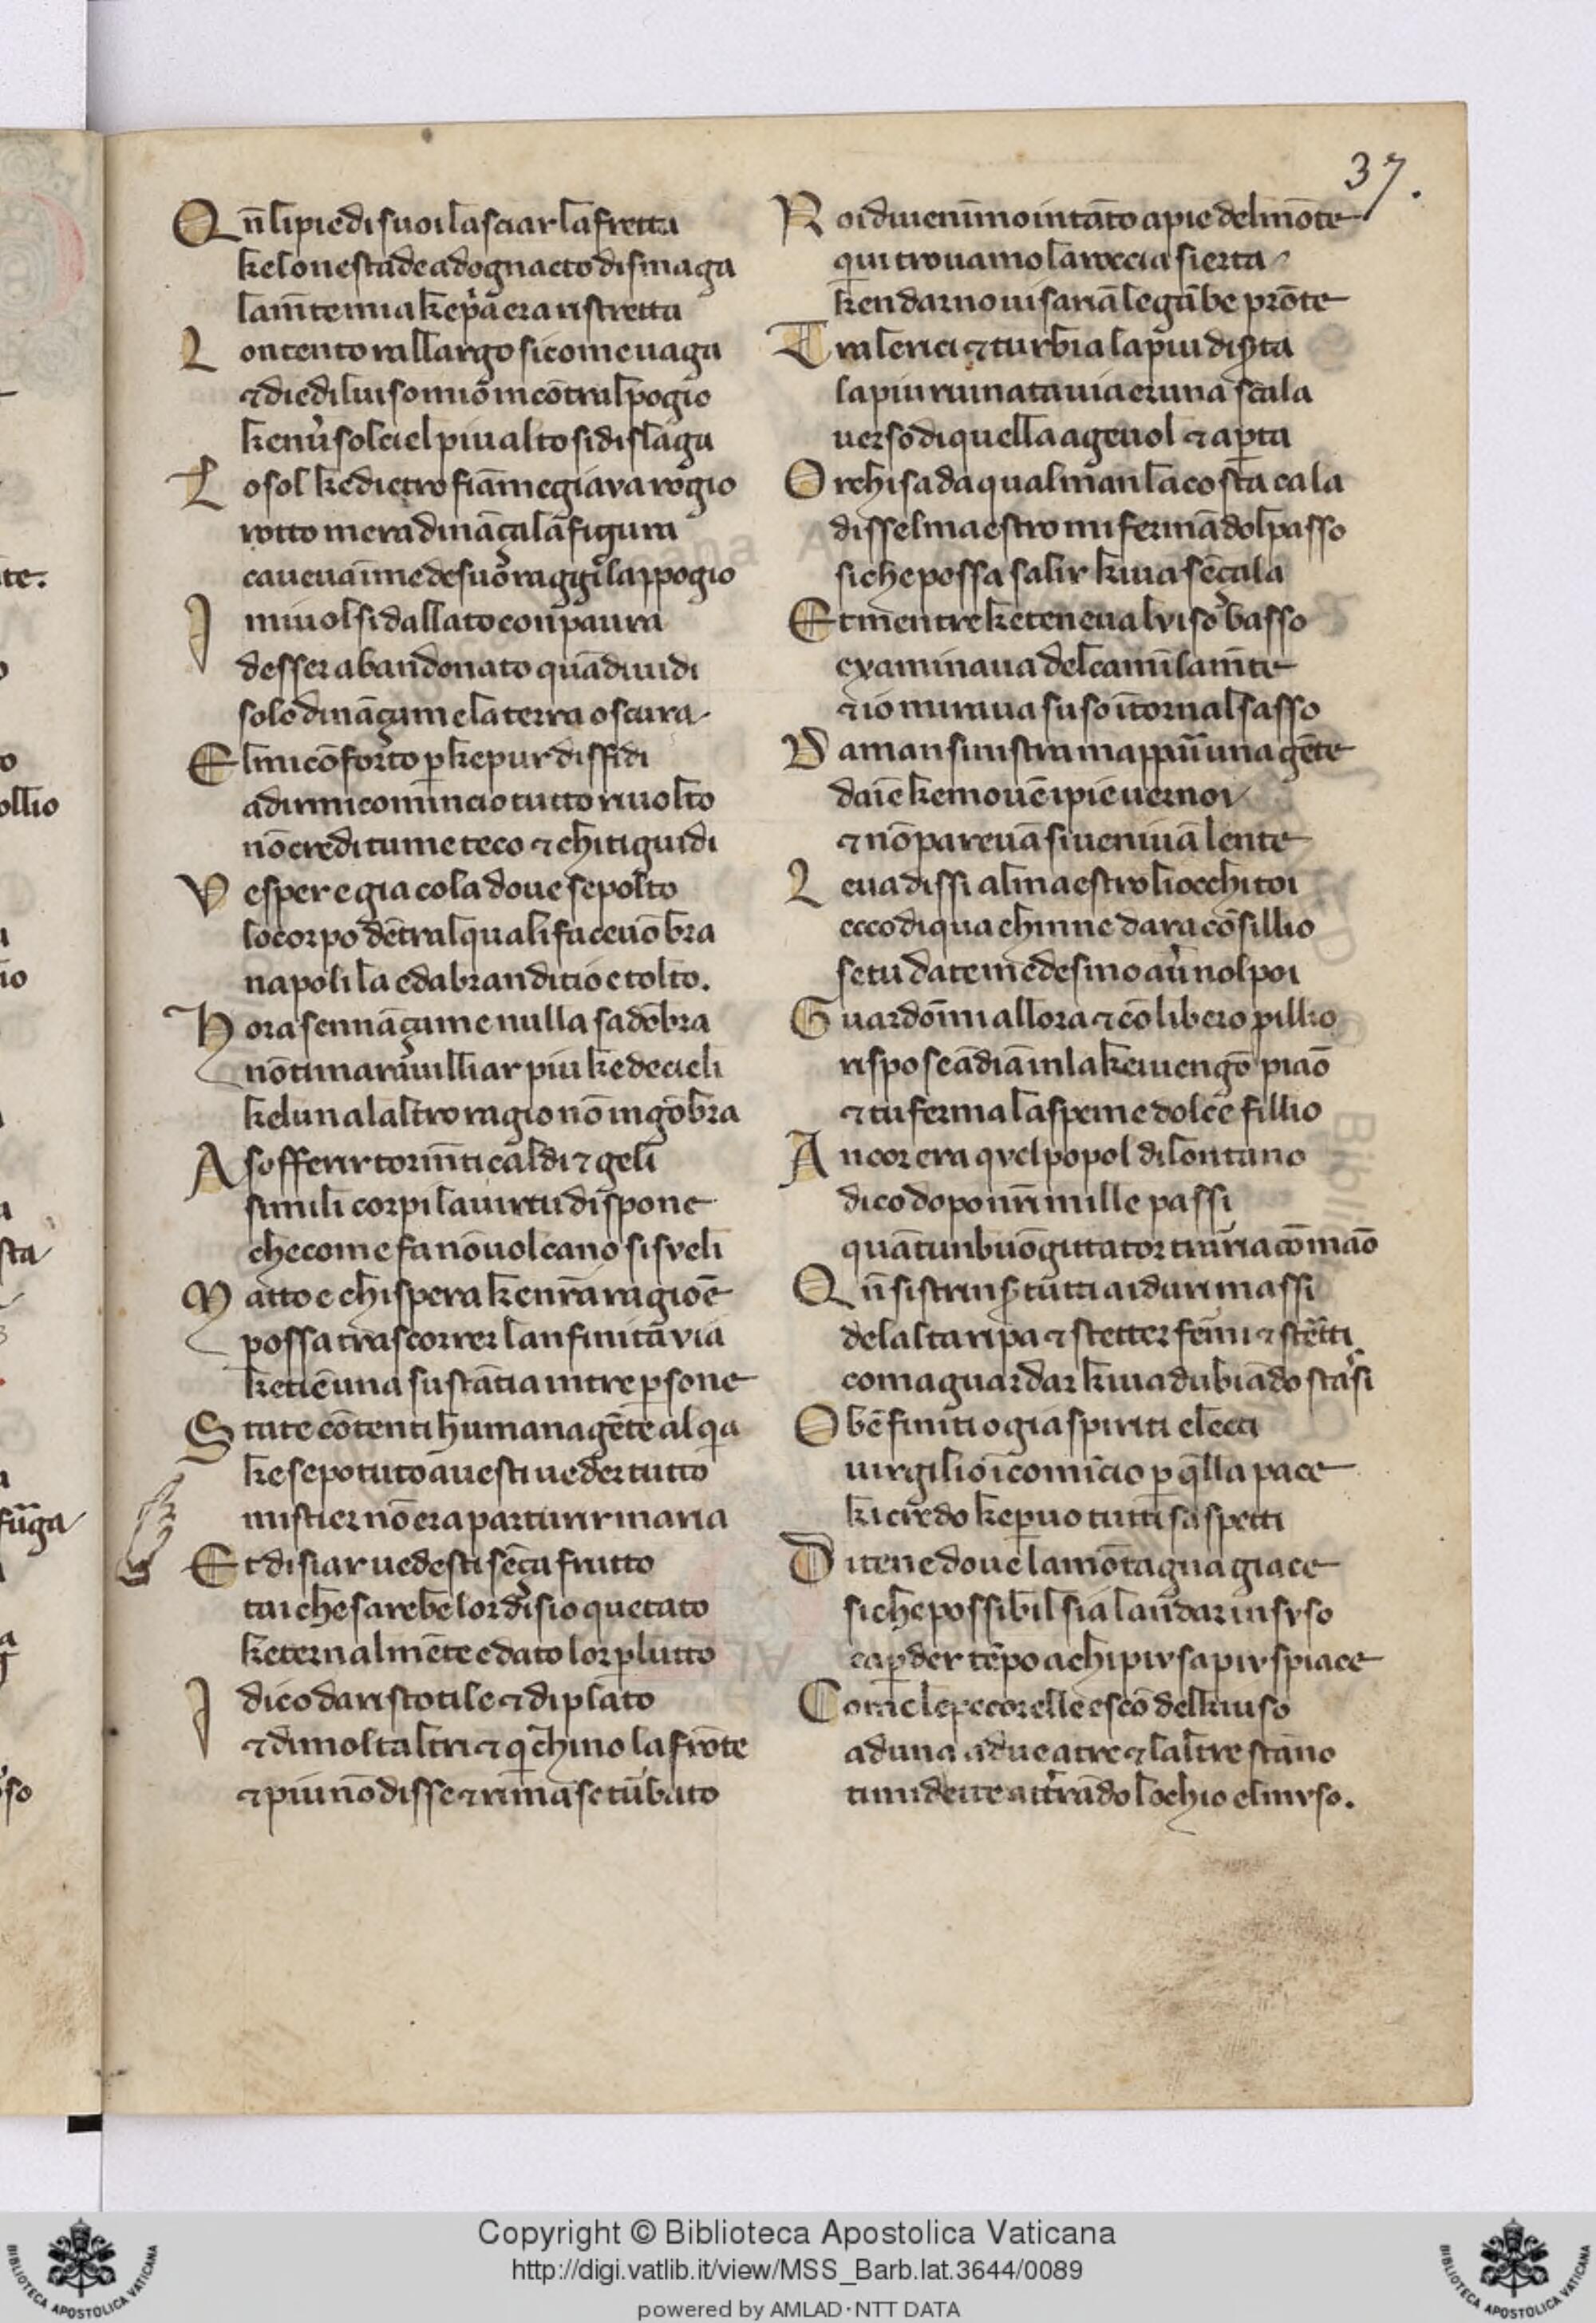 37.
Qñ li piedi suoi lasciar la fretta
ke lonestade adogn acto dismaga
la m̄te mia ke pͥa era ristretta
Lo ntento rallargo si come uaga
⁊ diedi luiso mio incōtral pogio
kenuͥsol ciel piu alto si dislaga
Lo sol ke dietro fiāmegiava rogio
rotto mera dināçi a la figura
caueua in me de suoͥ raggi lappogio
I mi uolsi dallato con paura
desser abandonato quādiuidi
solo dināçi a me la terra oscura
El mi cōforto p̱ ke pur diffidi
a dirmi comincio tutto riuolto
nō credi tu me teco ⁊ chi ti guidi
Vesper e gia cola doue sepolto
lo corpo dētral quali faceuōbra
napoli la e da branditio e tolto.
Hora sennāçi a me nulla sadōbra
nō ti marauilliar piu ke de cieli
ke lun alaltro ragio nō ingōbra
A sofferir torm̄ti caldi ⁊ geli
simili corpi la uirtu dispone
che come fa nō uol ca no si sveli
Matto e chi spera ke nr̄a ragiōe
possa trascorrer la nfinita via
ke tiē una sustātia in tre p̱sone
State cōtenti humana gēte al qͥa
ke se potuto auesti ueder tutto
mistier nō era parturir maria
Et disiar uedesti sēça frutto
tai che sarebe lor disio quetato
keternalmēte e dato lor p̱ lutto
I dico daristotile ⁊ di plato
⁊ di molt altri ⁊ qͥ chino la frōte
⁊ piu nō disse ⁊ rimase tūbato
Poi diuenimo intāto a pie del mōte
qui trouamo la roccia si erta
kendarno ui sariā le gābe prōte
Tra lerici ⁊ turbia la piu dis̱ta
la piu ruinata uia e runa scala
uerso di quella ageuol ⁊ ap̱ta
Or chi sa da qual man la costa cala
dissel maestro mi fermādol passo
si che possa salir kiua sēçala
Et mentre ke teneua lviso basso
examinaua del camī la m̄te
⁊ io miraua suso ītornal sasso
Da man sinistra mappͥ una gēte
daīe ke mouē i pie uer noi
⁊ nō pareuā si ueniuā lente
Leua dissi al maestro li occhi toi
ecco di qua chi nne dara cōsillio
se tu da te medesmo auͥ nol poi
Guardōmi allora ⁊ cō libero pillio
rispose ādiā in la ke i uengō piāo
⁊ tu ferma la speme dolce fillio
Ancor era qvel popol di lontano
dico dopo nr̄i mille passi
quātun buō gittator traria cō māo
Qñ si strins̄ tutti ai duri massi
de lalta ripa ⁊ stetter fermi ⁊ strētti
com a guardar ki ua dubiādo stasͥi
O bē finiti o gia spiriti electi
uirgilio īcomīcio p̱ q̄lla pace
ki credo ke p̱ uo tutti saspetti
Ditene doue la mōtagna giace
si che possibil sia landar in svso
ca p̱der tēpo a chi piv sa piv spiace
Come le pecorelle escō del kiuso
ad una a due a tre ⁊ laltre stāno
timidette attrādo lochio el mvso.
Copyright © Biblioteca Apostolica Vaticana
http://digi.vatlib.it/view/MSS_Barb.lat.3644/0089
powered by AMLAD·NTT DATA
BIBLIOTECA APOSTOLICA VATICANA
BIBLIOTECA APOSTOLICA VATICANA